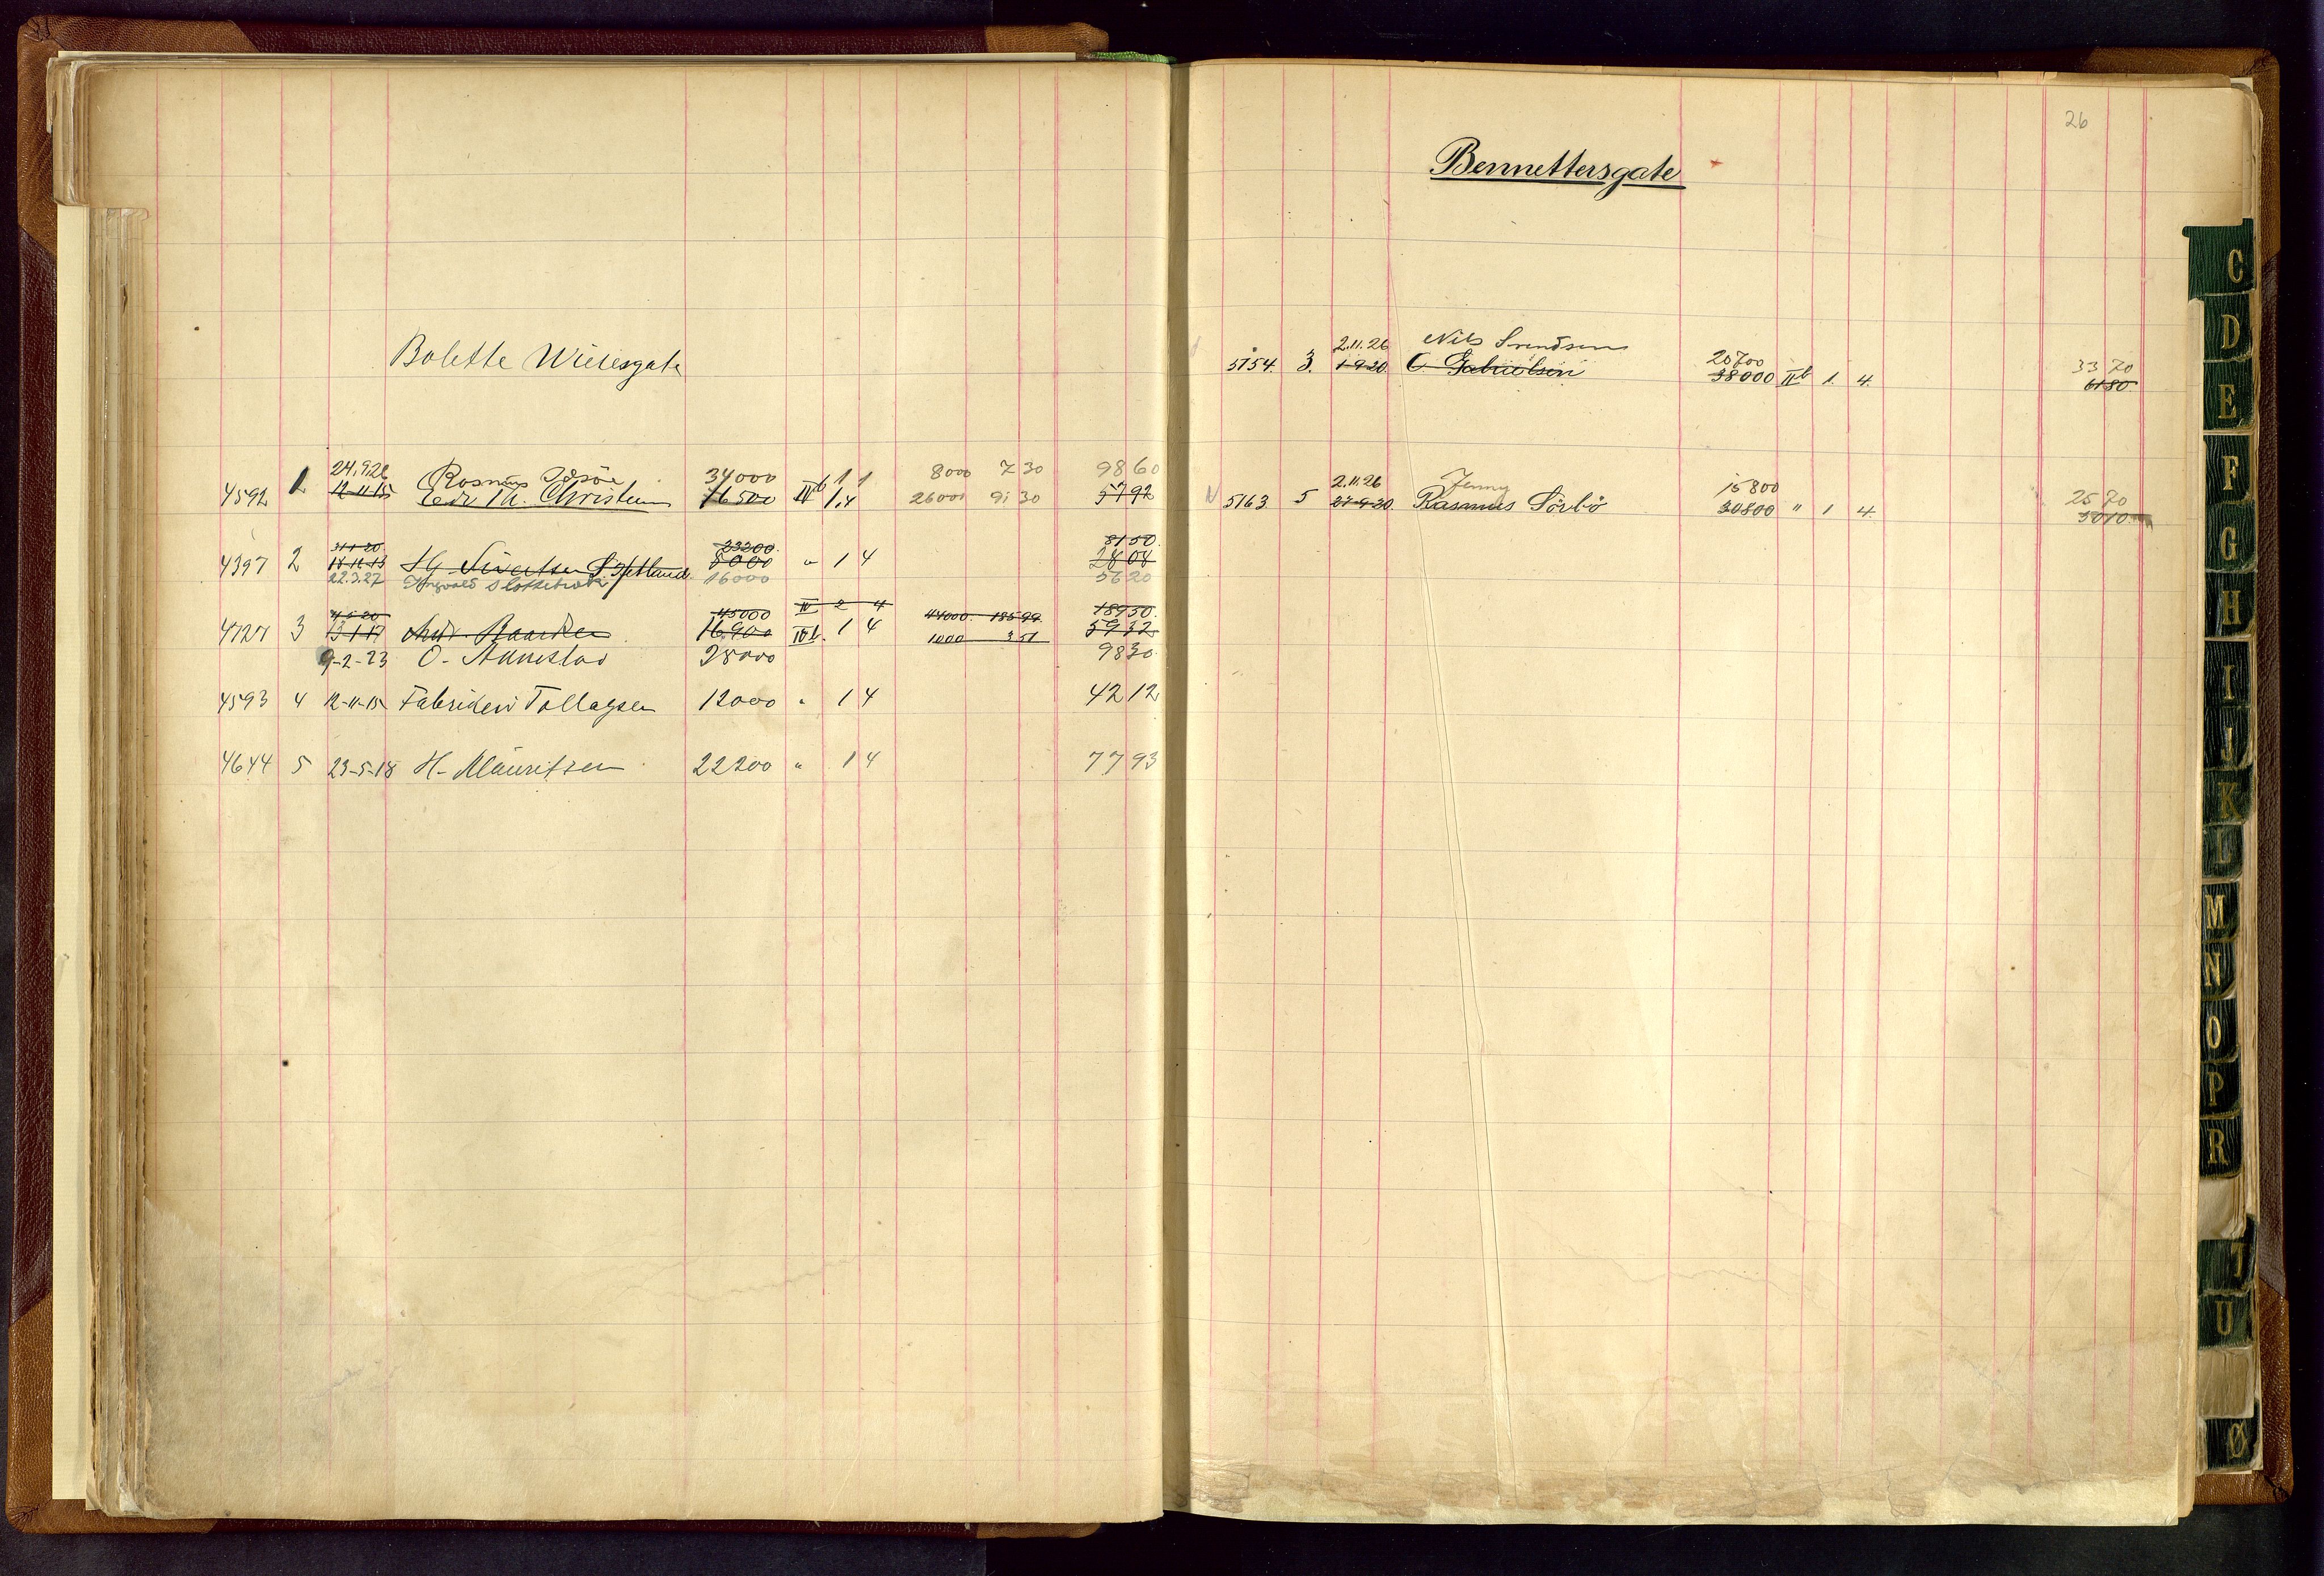 Bolette Wielesgate
24.9.26 Rasmus 34000 1 1 8000 7 30 98 60
4592 1 12-11-15 Chr. Christensen 16500 IIIb 1.4 26000 9: 30 57 92
31-1-20 23200 81 50
4397 2 18-12-13 H. Sivertsen S. Jetlund 8000 " 1 4 28 08
22.3.27 Ingvald Slottebrekk 16000 56 20
4-5-20 45000 IV 2 4 44000 185 99 189 50
4727 3 13-1-17 Andr. Baardsen 16900 IIIb. 1 4 1000 3 51 59 32
9-2-23 O. Aunestad 28000 98 30
4593 4 12-11-15 Fabrikeier Tollagsen 12000 " 1 4 42 12
4644 5 23-5-18 H. Mauritzen 22200 " 1 4 77 93
26
Bennettersgate
2.11.26 Nils Svendsen 20700 33 70
5154. 3. 1-9-20 C. Gabrielsen 38000 IIb 1. 4. 61 80
2.11.26 Jenny 15800 25 70
5163. 5 27-9-20. Rasmus Sörbö 30800 " 1 4. 50 10
C
D
E
F
G
H
I
J
K
L
M
N
O
P
R
T
U
Ø